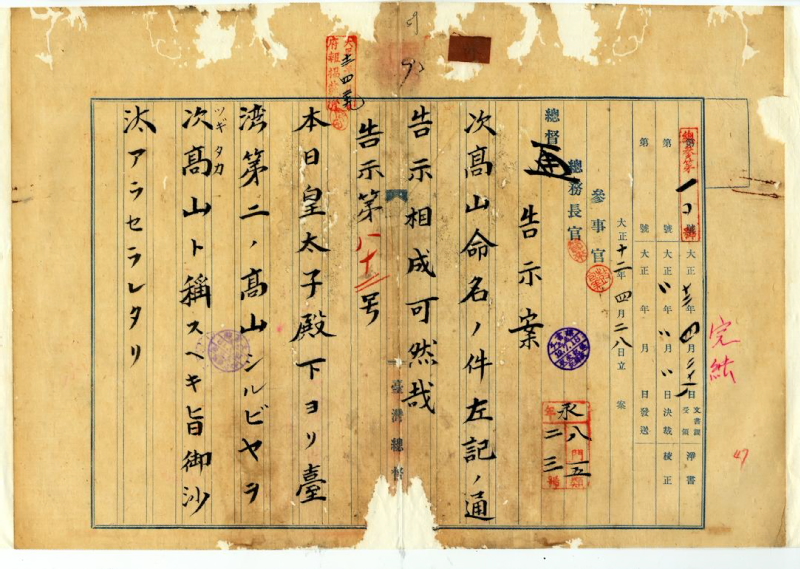 完結
第 號 大正 年 月 日 文書課受領 淨書
第 號 大正 年 月 日決裁 校正
第 號 大正 年 月 日發送
大正十二年四月二八日立案
參事官
總務長官
總督
永八門五類
二三
告示案
次高山命名ノ件左記ノ通
告示相成可然哉
臺灣總督
告示第八十三号
本日皇太子殿下ヨリ臺
湾第二ノ高山シルビヤヲ
次高山ト稱スヘキ旨御沙
ツギタカ
汰アラセラレタリ